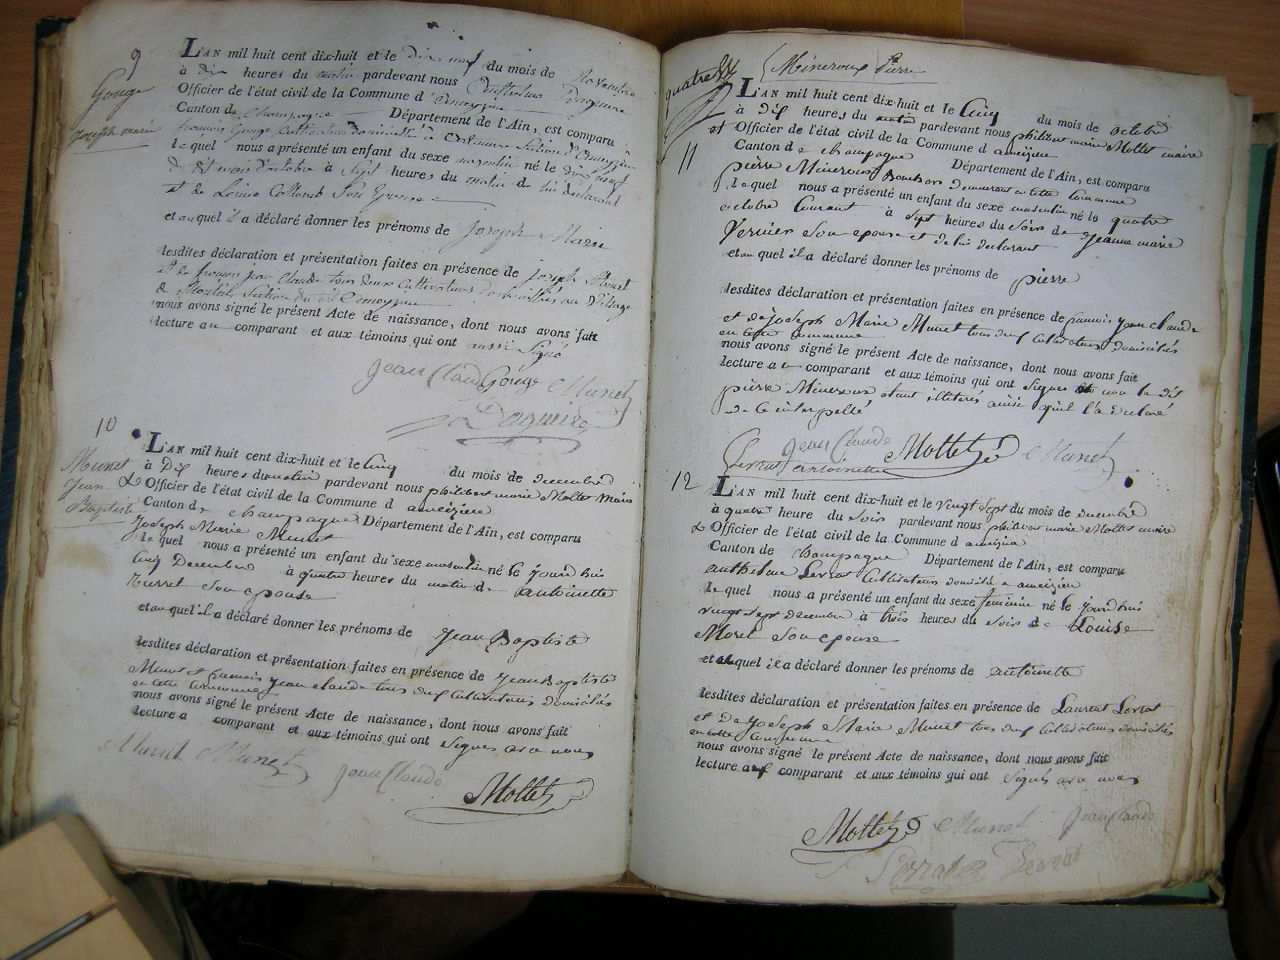 9
Gouge
Joseph marie
L'AN mil huit cent dix-huit et le dix neuf du mois de Novembre
à dix heures du matin pardevant nous
Officier de l'état civil de la Commune d
Canton de Champagne Département de l'Ain, est comparu
françois Gouge Cultivateur domicilié à
le quel nous a présenté un enfant du sexe masculin né le dix neuf
à sept heures du matin de lui déclarant
et de Louise Collomb Son Epouse
et auquel il a déclaré donner les prénoms de Joseph Marie
lesdites déclaration et présentation faites en présence de Joseph Munet
et de françois jean Claude tous deux Cultivateurs
nous avons signé le présent Acte de naissance, dont nous avons fait
lecture au comparant et aux témoins qui ont aussi Signé
Jean Claude Gouge Munet
10
Munet
Jean
Baptiste
L'AN mil huit cent dix-huit et le Cinq du mois de decembre
à Dix heures du matin pardevant nous philibert marie Mollet maire
& Officier de l'état civil de la Commune d ameizieu
Canton de champagne Département de l'Ain, est comparu
Joseph Marie Munet
le quel nous a présenté un enfant du sexe masculin né le jourd'huis
Cinq Decembre à quatre heures du matin de antoinette
Son epouse
et auquel il a déclaré donner les prénoms de Jean Baptiste
lesdites déclaration et présentation faites en présence de Jean Baptiste
Munet et francois jean claude tous deux Cultivateurs domiciliés
en cette commune
nous avons signé le présent Acte de naissance, dont nous avons fait
lecture a comparant et aux témoins qui ont Signes avec nous
Munet Munet Jean Claude
Mollet
Mineroux Pierre
11
L'AN mil huit cent dix-huit et le Cinq du mois de octobre
à dix heures du matin pardevant nous philibert marie Mollet maire
et Officier de l'état civil de la Commune d ameizieu
Canton de champagne Département de l'Ain, est comparu
pierre Mineroux demeurant en cette Commune
le quel nous a présenté un enfant du sexe masculin né le quatre
octobre Courant à sept heures du Soir de Jeanne marie
Vernier Son epouse et de lui declarant
et auquel il a déclaré donner les prénoms de pierre
lesdites déclaration et présentation faites en présence de francois jean claude
et de Joseph Marie Munet tous deux Cultivateurs domiciliés
en cette commune
nous avons signé le présent Acte de naissance, dont nous avons fait
lecture a comparant et aux témoins qui ont Signes non le dit
pierre Mineroux étant illiterés ainsi qu'il l'a declaré
de ce interpellé
Jean Claude Mollet Munet
12
L'AN mil huit cent dix-huit et le vingt Sept du mois de decembre
à quatre heure du Soir pardevant nous philibert marie Mollet maire
& Officier de l'état civil de la Commune d ameizieu
Canton de Champagne Département de l'Ain, est comparu
anthelme Levrat Cultivateur domicilié a ameizieu
le quel nous a présenté un enfant du sexe feminin né le jourd'huis
vingt Sept decembre à trois heures du Soir de Louise
Morel Son epouse
et auquel il a déclaré donner les prénoms de antoinette
lesdites déclaration et présentation faites en présence de Laurent Levrat
et de Joseph Marie Munet tous deux Cultivateurs domiciliés
en cette commune
nous avons signé le présent Acte de naissance, dont nous avons fait
lecture aux comparant et aux témoins qui ont Signes avec nous
Mollet Munet Jean Claude
Levrat